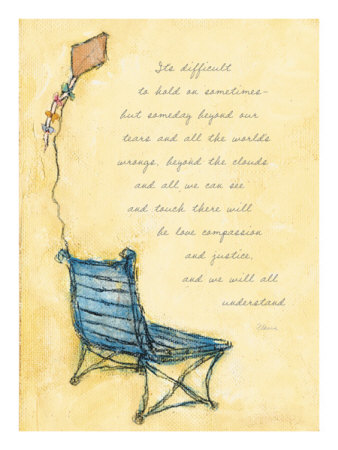 Its difficult
to hold on sometimes-
but someday beyond our
tears and all the worlds
wrongs, beyond the clouds
and all we can see
and touch there will
be love compassion
and justice,
and we will all
understand